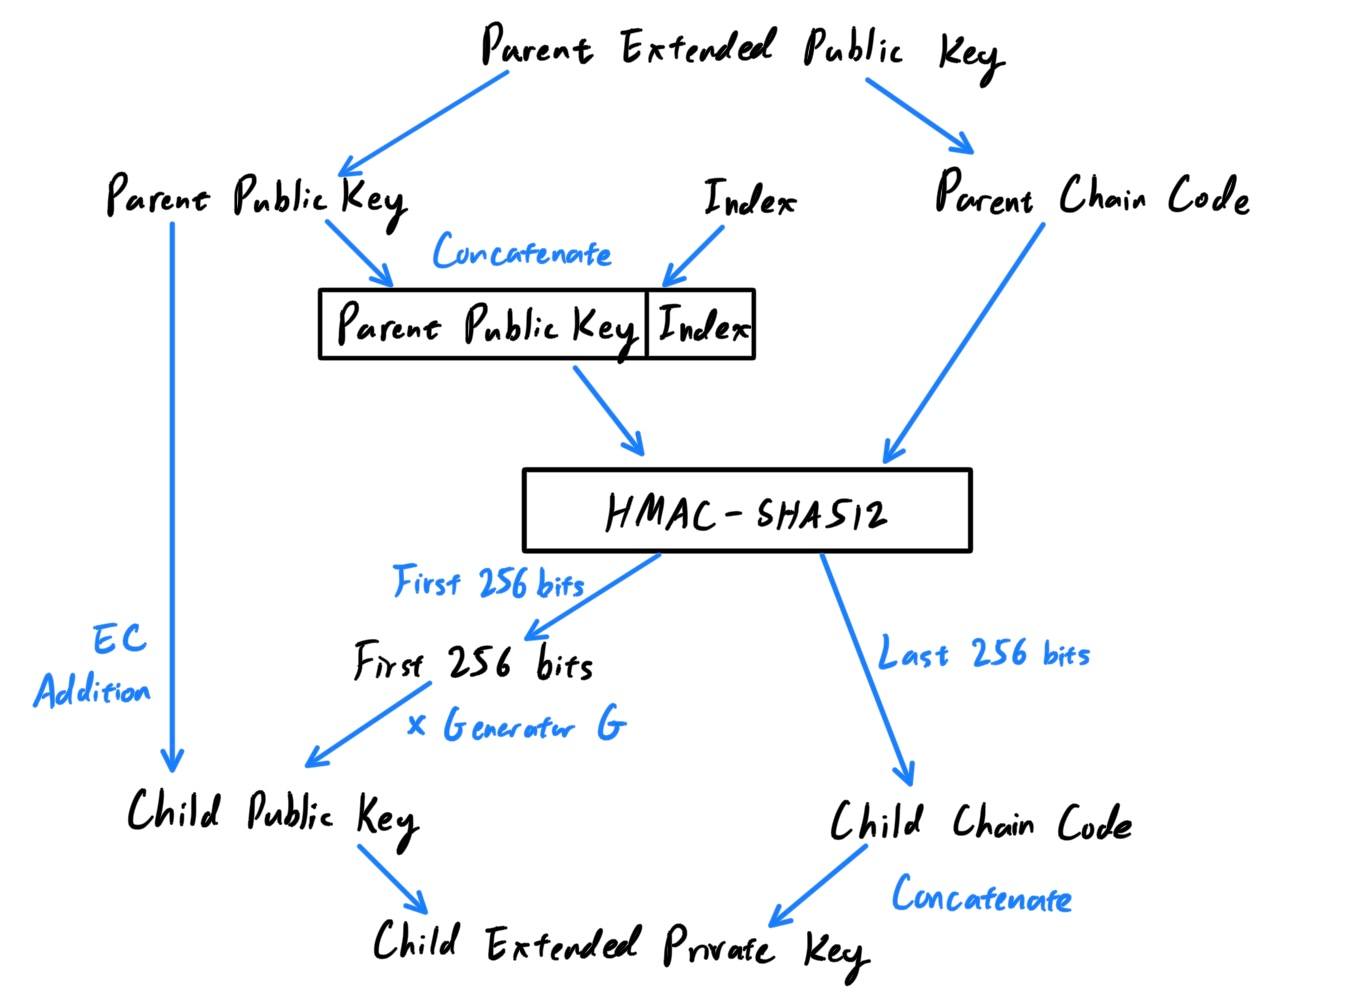 Parent Extended Public Key
Parent Public Key
Index
Parent Chain Code
Concatenate
Parent Public Key Index
HMAC-SHA512
First 256 bits
First 256 bits
Last 256 bits
EC
Addition
x Generator G
Child Public Key
Child Chain Code
Concatenate
Child Extended Private Key